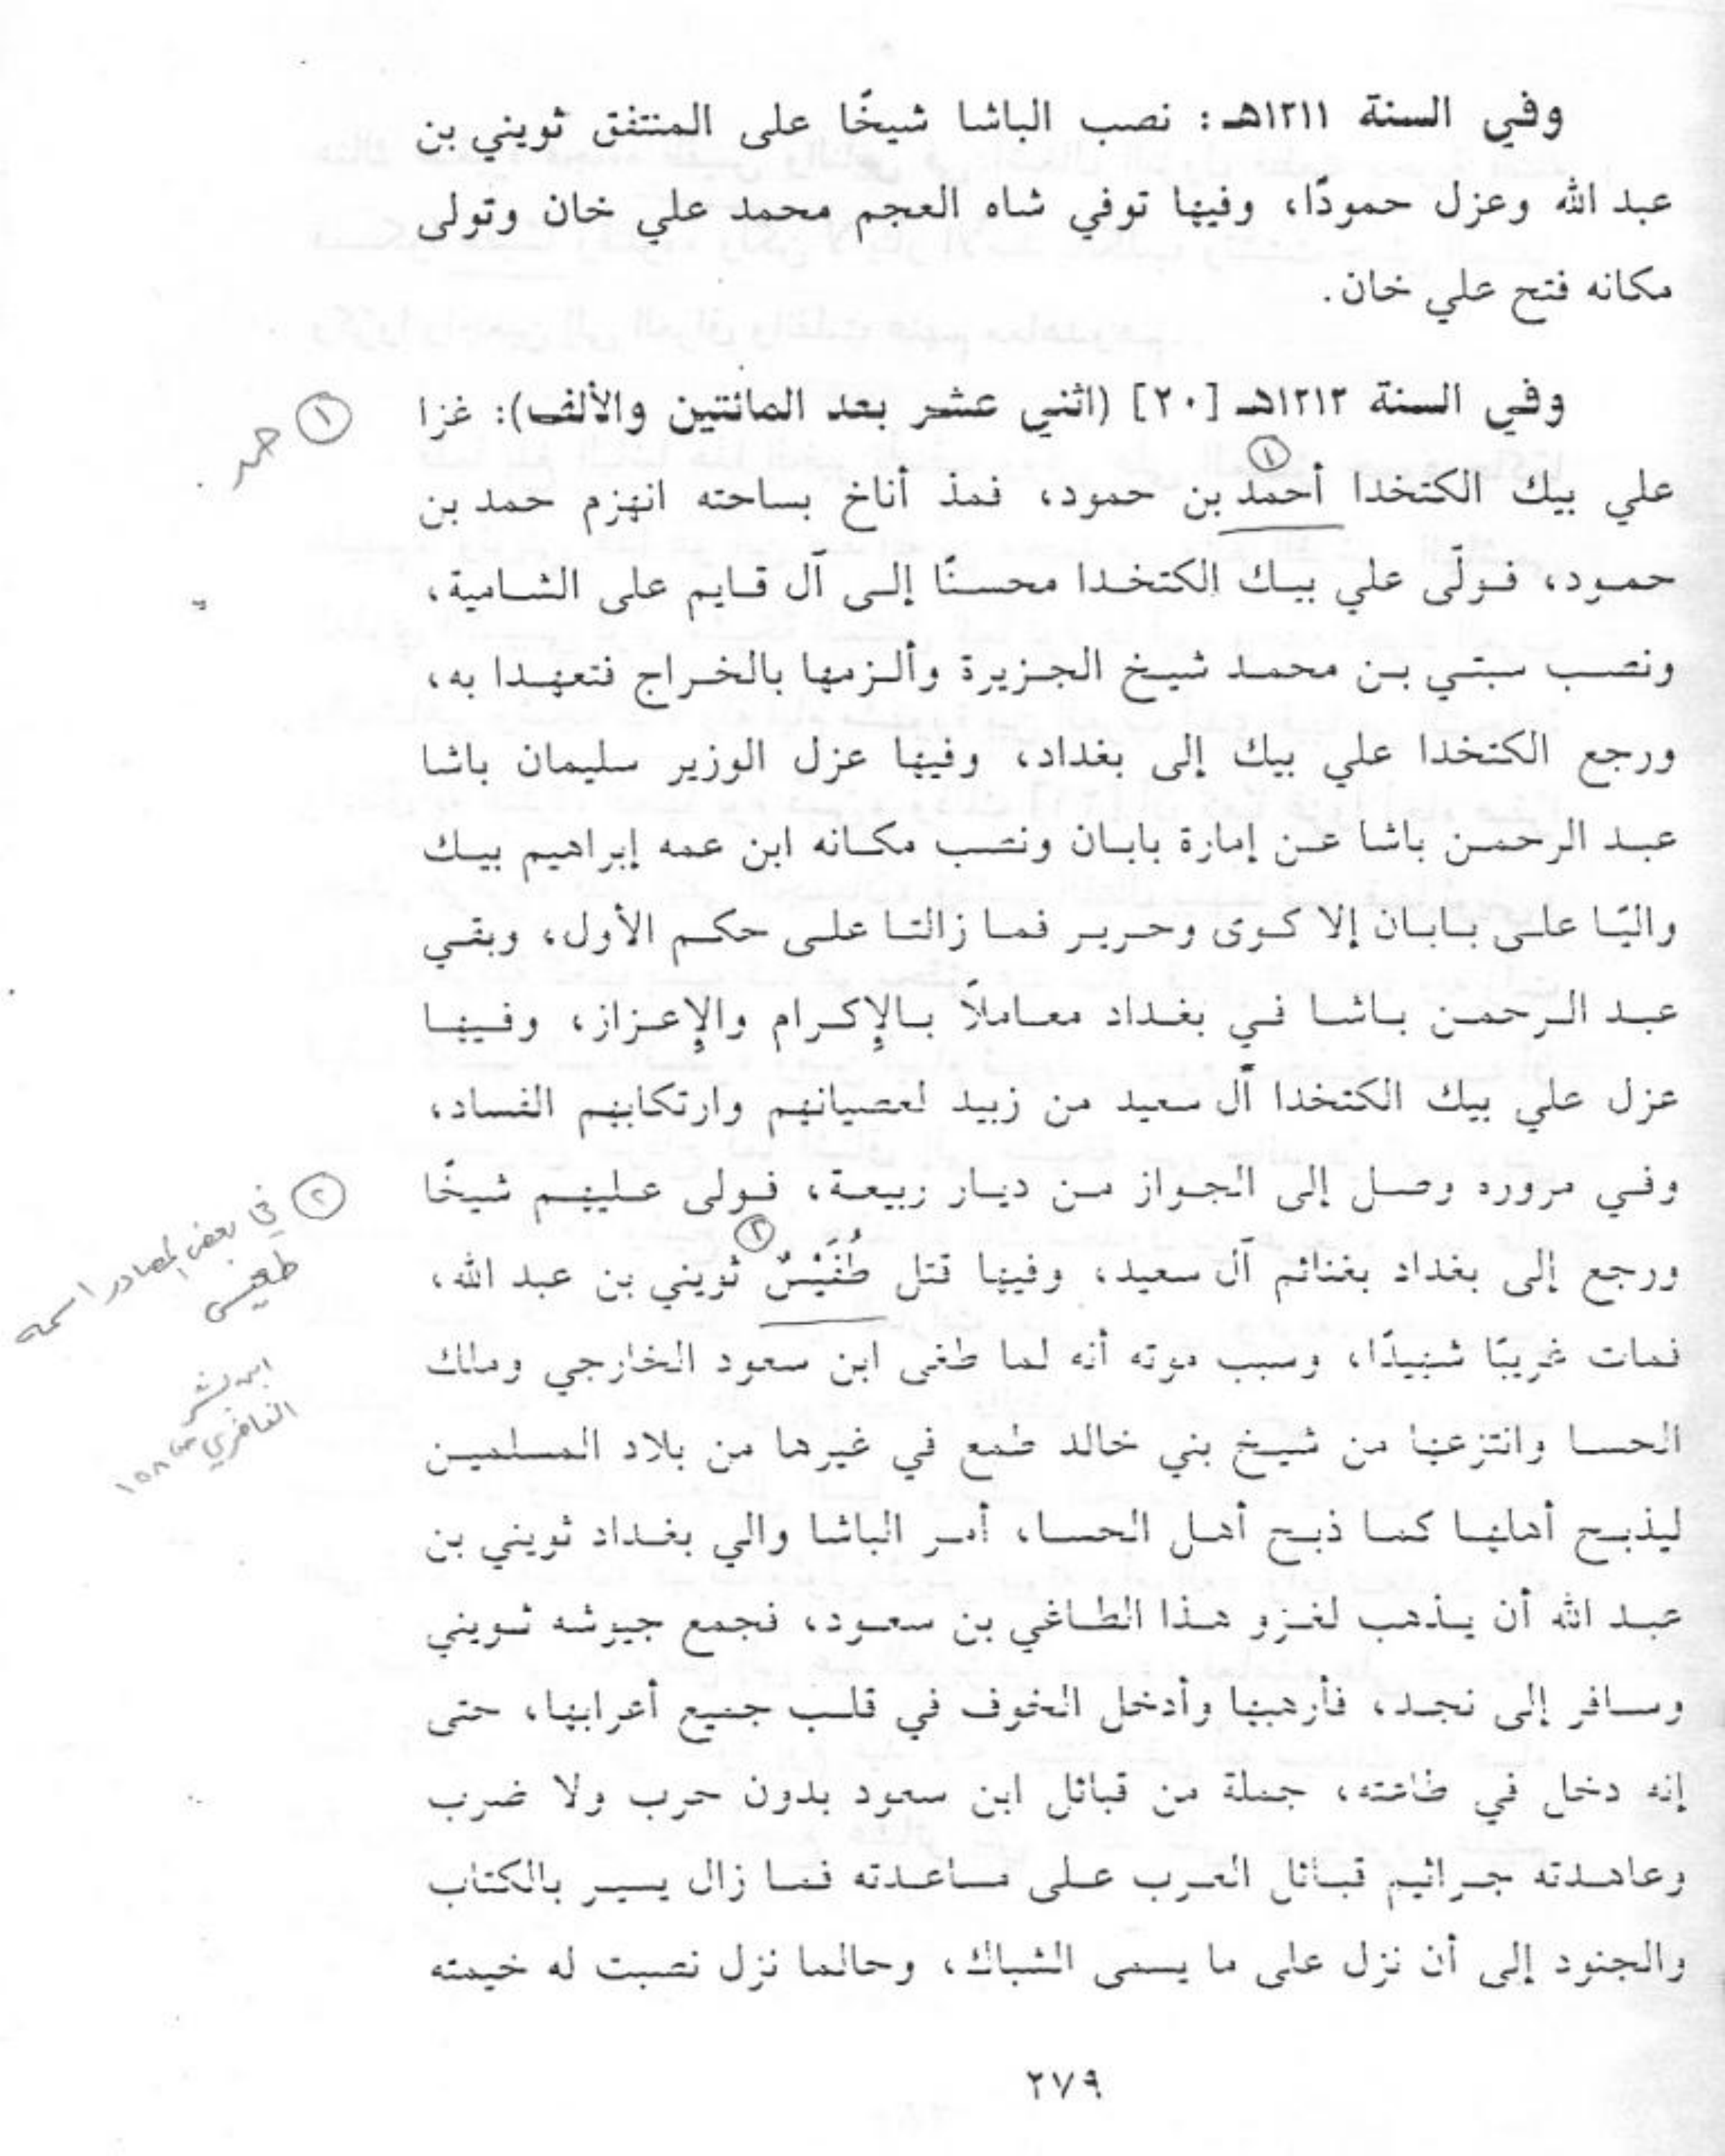 وفي السنة ١٢١١هـ: نصب الباشا شيخًا على المنتفق ثويني بن
عبد الله وعزل حمودًا، وفيها توفي شاه العجم محمد علي خان وتولى
مكانه فتح علي خان.
وفي السنة ١٢١٢هـ [٢٠] (اثني عشر بعد المائتين والألف): غزا
علي بيك الكتخدا أحمد (١) بن حمود، فمذ أناخ بساحته انهزم حمد بن
حمود، فولّى علي بيك الكتخدا محسنًا إلى آل قايم على الشامية،
ونصب سبتي بن محمد شيخ الجزيرة وألزمها بالخراج فتعهدا به،
ورجع الكتخدا علي بيك إلى بغداد، وفيها عزل الوزير سليمان باشا
عبد الرحمن باشا عن إمارة بابان ونصب مكانه ابن عمه إبراهيم بيك
واليًا على بابان إلا كوى وحرير فما زالتا على حكم الأول، وبقي
عبد الرحمن باشا في بغداد معاملاً بالإكرام والإعزاز، وفيها
عزل علي بيك الكتخدا آل سعيد من زبيد لعصيانهم وارتكابهم الفساد،
وفي مروره وصل إلى الجواز من ديار ربيعة، فولى عليهم شيخًا
ورجع إلى بغداد بغنائم آل سعيد، وفيها قتل طُفَيْسٌ (٢) ثويني بن عبد الله،
فمات غريبًا شهيدًا، وسبب موته أنه لما طغى ابن سعود الخارجي وملك
الحسا وانتزعها من شيخ بني خالد طمع في غيرها من بلاد المسلمين
ليذبح أهلها كما ذبح أهل الحسا، أمر الباشا والي بغداد ثويني بن
عبد الله أن يذهب لغزو هذا الطاغي بن سعود، فجمع جيوشه ثويني
وسافر إلى نجد، فأرهبها وأدخل الخوف في قلب جميع أعرابها، حتى
إنه دخل في طاعته، جملة من قبائل ابن سعود بدون حرب ولا ضرب
وعاهدته جراثيم قبائل العرب على مساعدته فما زال يسير بالكتاب
والجنود إلى أن نزل على ما يسمى الشباك، وحالما نزل نصبت له خيمته
٢٧٩
(١) حمد
(٢) في بعض المصادر اسمه
طعيس
ابن بشر
الفاخري ص ١٥٨